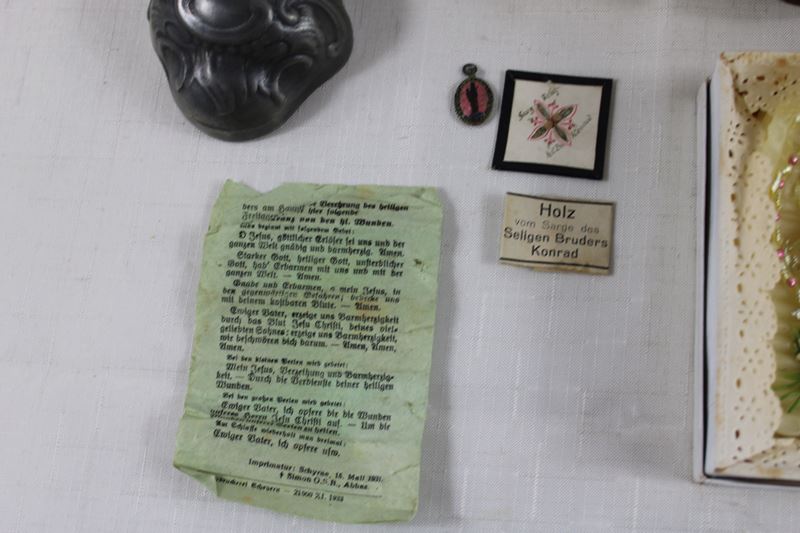 Verehrung des heiligen
ders am hier folgende
von den hl. Wunden.
Man beginnt mit folgendem Gebet:
O Jesus, göttlicher Erlöser sei uns und der
ganzen Welt gnädig und barmherzig. Amen.
Starker Gott, heiliger Gott, unsterblicher
Gott, hab' Erbarmen mit uns und mit der
ganzen Welt. — Amen.
Gnade und Erbarmen, o mein Jesus, in
den gegenwärtigen Gefahren; bedecke uns
mit deinem kostbaren Blute. — Amen.
Ewiger Vater, erzeige uns Barmherzigkeit
durch das Blut Jesu Christi, deines viel-
geliebten Sohnes: erzeige uns Barmherzigkeit,
wir beschwören dich darum. — Amen, Amen,
Amen.
Bei den kleinen Perlen wird gebetet:
Mein Jesus, Verzeihung und Barmherzig-
keit. — Durch die Verdienste deiner heiligen
Wunden.
Bei den großen Perlen wird gebetet:
Ewiger Vater, ich opfere dir die Wunden
unseres Herrn Jesu Christi auf. — Um die
Wunden unserer Seelen zu heilen.
Am Schlusse wiederholt man dreimal:
Ewiger Vater, ich opfere usw.
Imprimatur: Schyrae, 16. Maii 1931.
† Simon O.S.B., Abbas.
Scheyern — 21000 XI. 1933
Holz
vom Sarge des
Seligen Bruders
Konrad